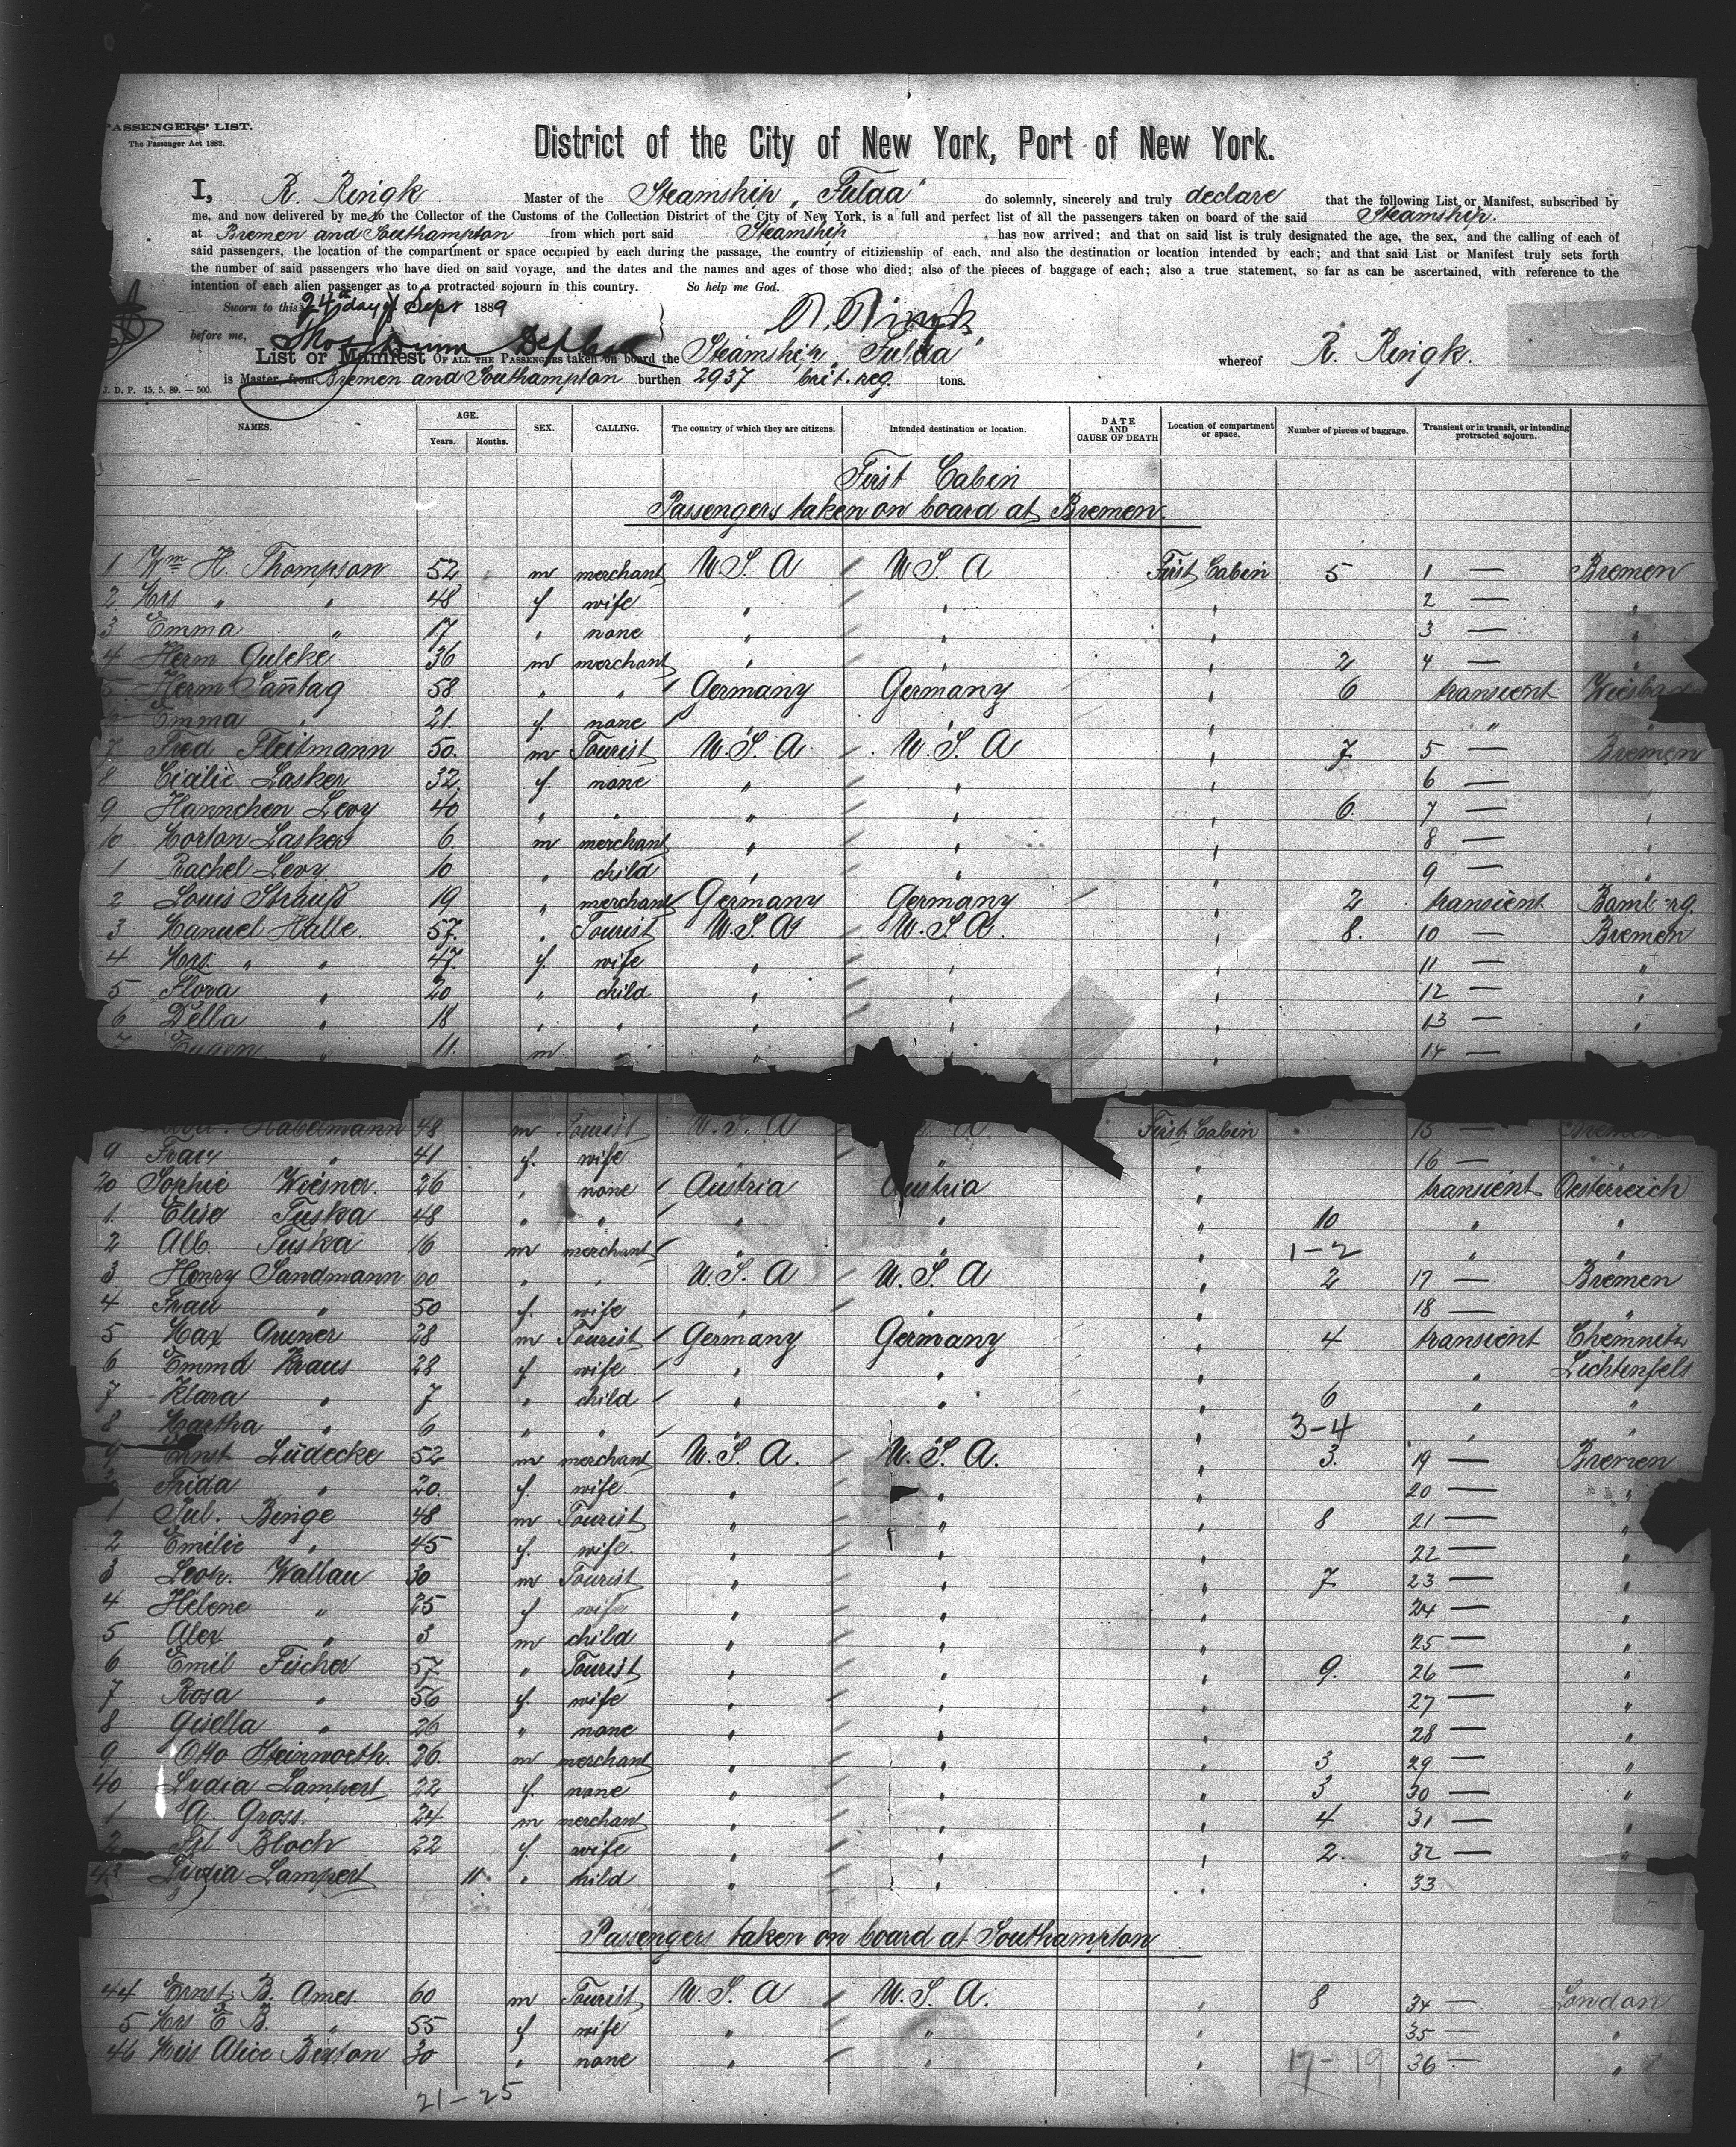 PASSENGERS' LIST.
The Passenger Act 1882.
District of the City of New York, Port of New York.
I, R. Ringk Master of the Steamship „Fulda" do solemnly, sincerely and truly declare that the following List or Manifest, subscribed by
me, and now delivered by me to the Collector of the Customs of the Collection District of the City of New York, is a full and perfect list of all the passengers taken on board of the said Steamship.
at Bremen and Southampton from which port said Steamship has now arrived; and that on said list is truly designated the age, the sex, and the calling of each of
said passengers, the location of the compartment or space occupied by each during the passage, the country of citizienship of each. and also the destination or location intended by each; and that said List or Manifest truly sets forth
the number of said passengers who have died on said voyage, and the dates and the names and ages of those who died; also of the pieces of baggage of each; also a true statement, so far as can be ascertained, with reference to the
intention of each alien passenger as to a protracted sojourn in this country. So help me God.
Sworn to this 24th day of Sept 1889 R. Ringk
before me, Thos Dunn
List or Manifest OF ALL THE PASSENGERS taken on board the Steamship „Fulda" whereof R. Ringk.
is Master, from Bremen and Southampton burthen 2937 brit. reg. tons.
J. D. P. 15. 5. 89. — 500.
NAMES. AGE. Years. Months. SEX. CALLING. The country of which they are citizens. Intended destination or location. DATE AND CAUSE OF DEATH Location of compartment or space. Number of pieces of baggage. Transient or in transit, or intending protracted sojourn.
First Cabin
Passengers taken on board at Bremen.
1 Wm H. Thompson 52 m merchant U S. A U S. A First Cabin 5 1 — Bremen
2 Mrs " " 48 f wife " " " 2 — "
3 Emma " 17 " none " " " 3 — "
4 Herm Gulcke 36 m merchant " " " 2 4 — "
5 Herm Santag 58 " " Germany Germany " 6 transient Wiesbad
6 Emma " 21. f. none " " " "
7 Fred Fleitmann 50. m Tourist U. S. A U. S. A " 7 5 — Bremen
8 Cäcilie Lasker 32. f. none " " " 6 —
9 Hannchen Levy 40 " " " " " 6. 7 — "
10 Morton Lasker 6. m merchant " " " 8 — "
1 Rachel Levy. 10 " child " " " 9 — "
2 Louis Strauß 19 " merchant Germany Germany " 2 transient Bamb rg.
3 Manuel Halle. 57. " Tourist U. S. A U. S. A. " 8. 10 — Bremen
4 Mrs. " " 47. f. wife " " " 11 — "
5 Flora " 20 " child " " " 12 — "
6 Della " 18 " " " " " 13 — "
7 Eugen " 11. m " " 14 —
Habelmann 48 m Tourist U. S. A A. First Cabin 15 — Bremen
9 Frau " 41 f. wife " " " 16 — "
20 Sophie Wiesner. 26 " none Austria Austria " transient Oesterreich
1. Elise Tuska 48 " " " " " 10 " "
2 Alb. Tuska 16 m merchant " " " 1-2 " "
3 Henry Sandmann 60 " " U. S. A U. S. A " 2 17 — Bremen
4 Frau " 50 f. wife " " " 18 — "
5 Max Gruner 28 m Tourist Germany Germany " 4 transient Chemnitz
6 Emma Kraus 28 f wife " " " " Lichtenfels
7 Klara " 7 " child " " " 6 " "
8 Martha " 6 " " " " " 3-4 " "
9 Ernst Lüdecke 52 m merchant U. S. A. U. S. A. " 3. 19 — Bremen
Frida " 20. f. wife. " " " 20 — "
1 Jul. Binge 48 m Tourist " " " 8 21 — "
2 Emilie " 45 f. wife. " " " 22 — "
3 Leoh. Wallau 30 m Tourist " " " 7 23 — "
4 Helene " 25 f wife " " " 24 — "
5 Alex " 3 m child " " " 25 — "
6 Emil Fischer 57 " Tourist " " " 9. 26 — "
7 Rosa " 56 f. wife " " " 27 — "
8 Gisella " 26 " none " " " 28 — "
9 Otto Steinworth. 26. m merchant " " " 3 29 — "
40 Lydia Lampert 22 f. none " " " 3 30 — "
1 A. Gross. 24 m merchant " " " 4 31 — "
2 Frl Bloch 22 f. wife " " " 2. 32 — "
43 Lydia Lampert 11. " child " " " 33
Passengers taken on board at Southampton
44 Ernst B. Ames. 60 m Tourist U. S. A U. S. A. " 8 34 — London
5 Mrs E B. " 55 f wife " " " 35 — "
46 Miss Alice Birton 30 " none " " " 17-19 36 — "
21-25